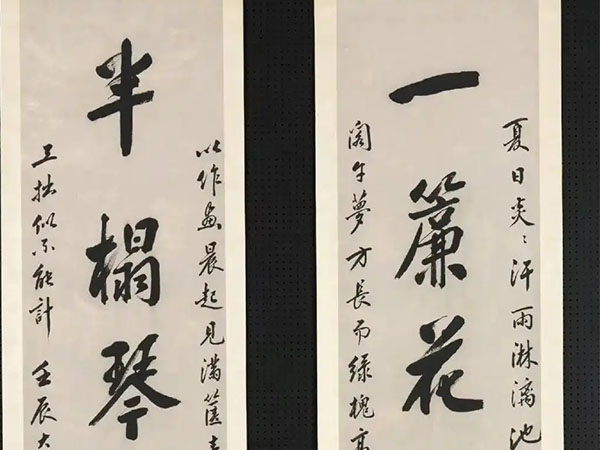 夏日炎〻汗雨淋漓池
一簾花
閣午夢方長而綠槐高
以作畫晨起見滿篋
半榻琴
工拙似不能計壬辰大